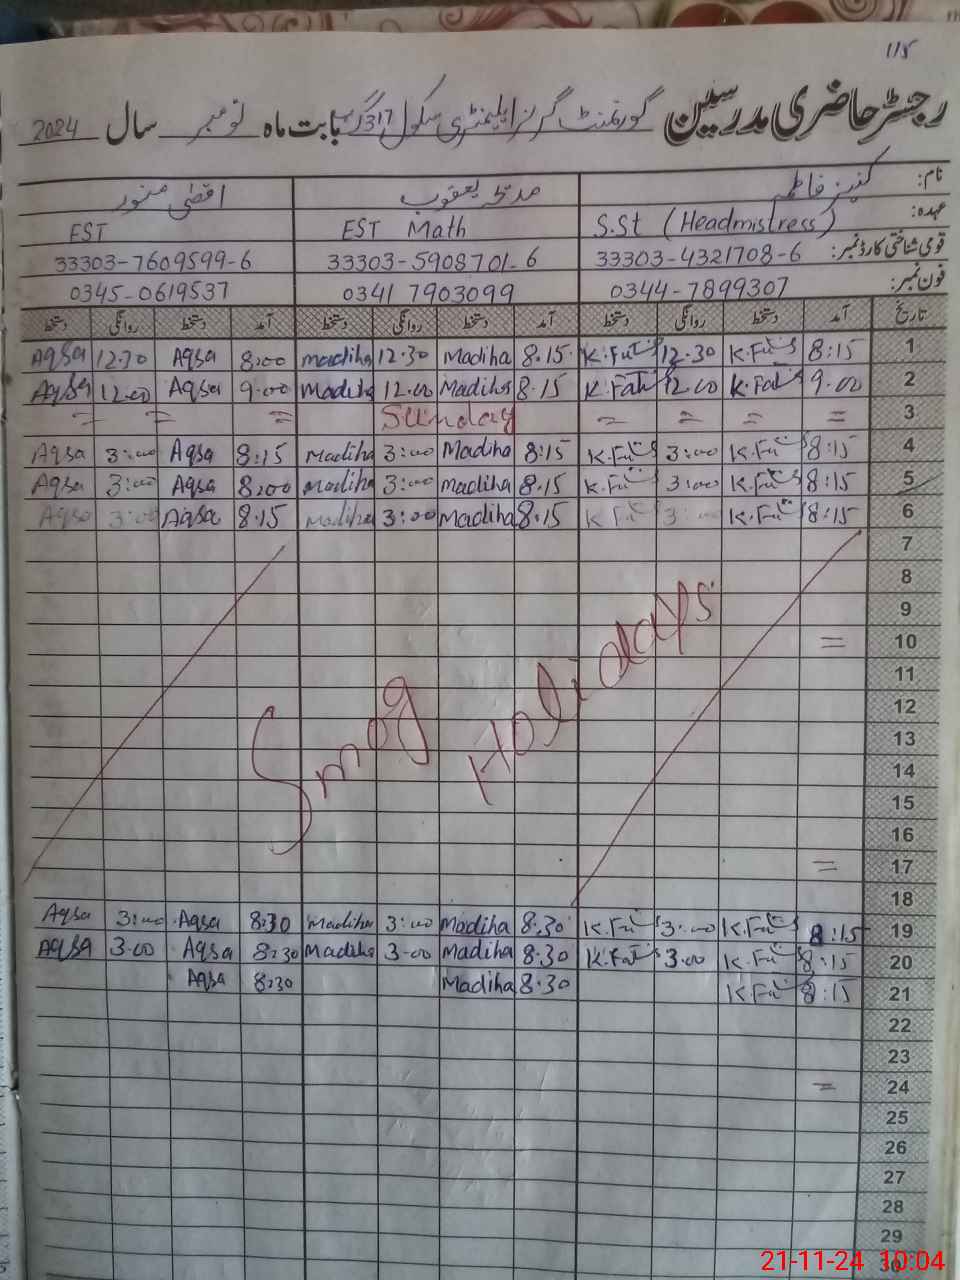 115
رجسٹر حاضری مدرسین گورنمنٹ گرلز ایلیمنٹری سکول 317 گ ب بابت ماہ نومبر سال 2024
نام: کنیز فاطمہ مدیحہ یعقوب اقصٰی منور
عہدہ: S.St (Headmistress) EST Math EST
قومی شناختی کارڈ نمبر: 33303-4321708-6 33303-5908701-6 33303-7609599-6
فون نمبر: 0344-7899307 0341 7903099 0345-0619537
تاریخ آمد دستخط روانگی دستخط آمد دستخط روانگی دستخط آمد دستخط روانگی دستخط
Aqsa 12.30 Aqsa 8:00 madiha 12.30 Madiha 8.15 K.Fat 12.30 K.Fat 8:15 1
Aqsa 12.00 Aqsa 9.00 Madiha 12.00 Madiha 8.15 K.Fati 12.00 K.Fat 9.00 2
= = = Sunday = = = = 3
Aqsa 3:00 Aqsa 8:15 Madiha 3:00 Madiha 8:15 K.Fat 3:00 K.Fat 8:15 4
Aqsa 3:00 Aqsa 8:00 madiha 3:00 madiha 8.15 K.Fat 3:00 K.Fat 8:15 5
Aqsa 3:00 Aqsa 8.15 Madiha 3:00 Madiha 8.15 K.Fat 3:00 K.Fat 8:15 6
7
8
9
= 10
11
12
13
14
15
16
= 17
18
Smog Holidays
Aqsa 3:00 Aqsa 8.30 Madiha 3:00 Madiha 8.30 K.Fat 3:00 K.Fat 8:15 19
Aqsa 3-00 Aqsa 8:30 Madiha 3-00 Madiha 8.30 K.Fat 3.00 K.Fat 8:15 20
Aqsa 8:30 Madiha 8.30 K.Fat 8:15 21
22
23
= 24
25
26
27
28
29
30
21-11-24 10:04